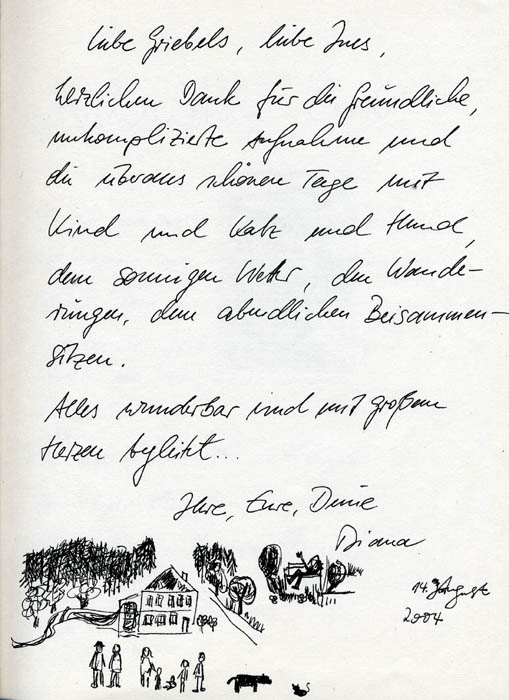 Liebe Griebels, liebe Ines,
herzlichen Dank für die freundliche,
unkomplizierte Aufnahme und
die überaus schönen Tage mit
Kind und Katz und Hund,
dem sonnigen Wetter, den Wande-
rungen, dem abendlichen Beisammen-
sitzen.
Alles wunderbar und mit großem
Herzen begleitet...
Ihre, Eure, Deine
Diana
14. August
2004